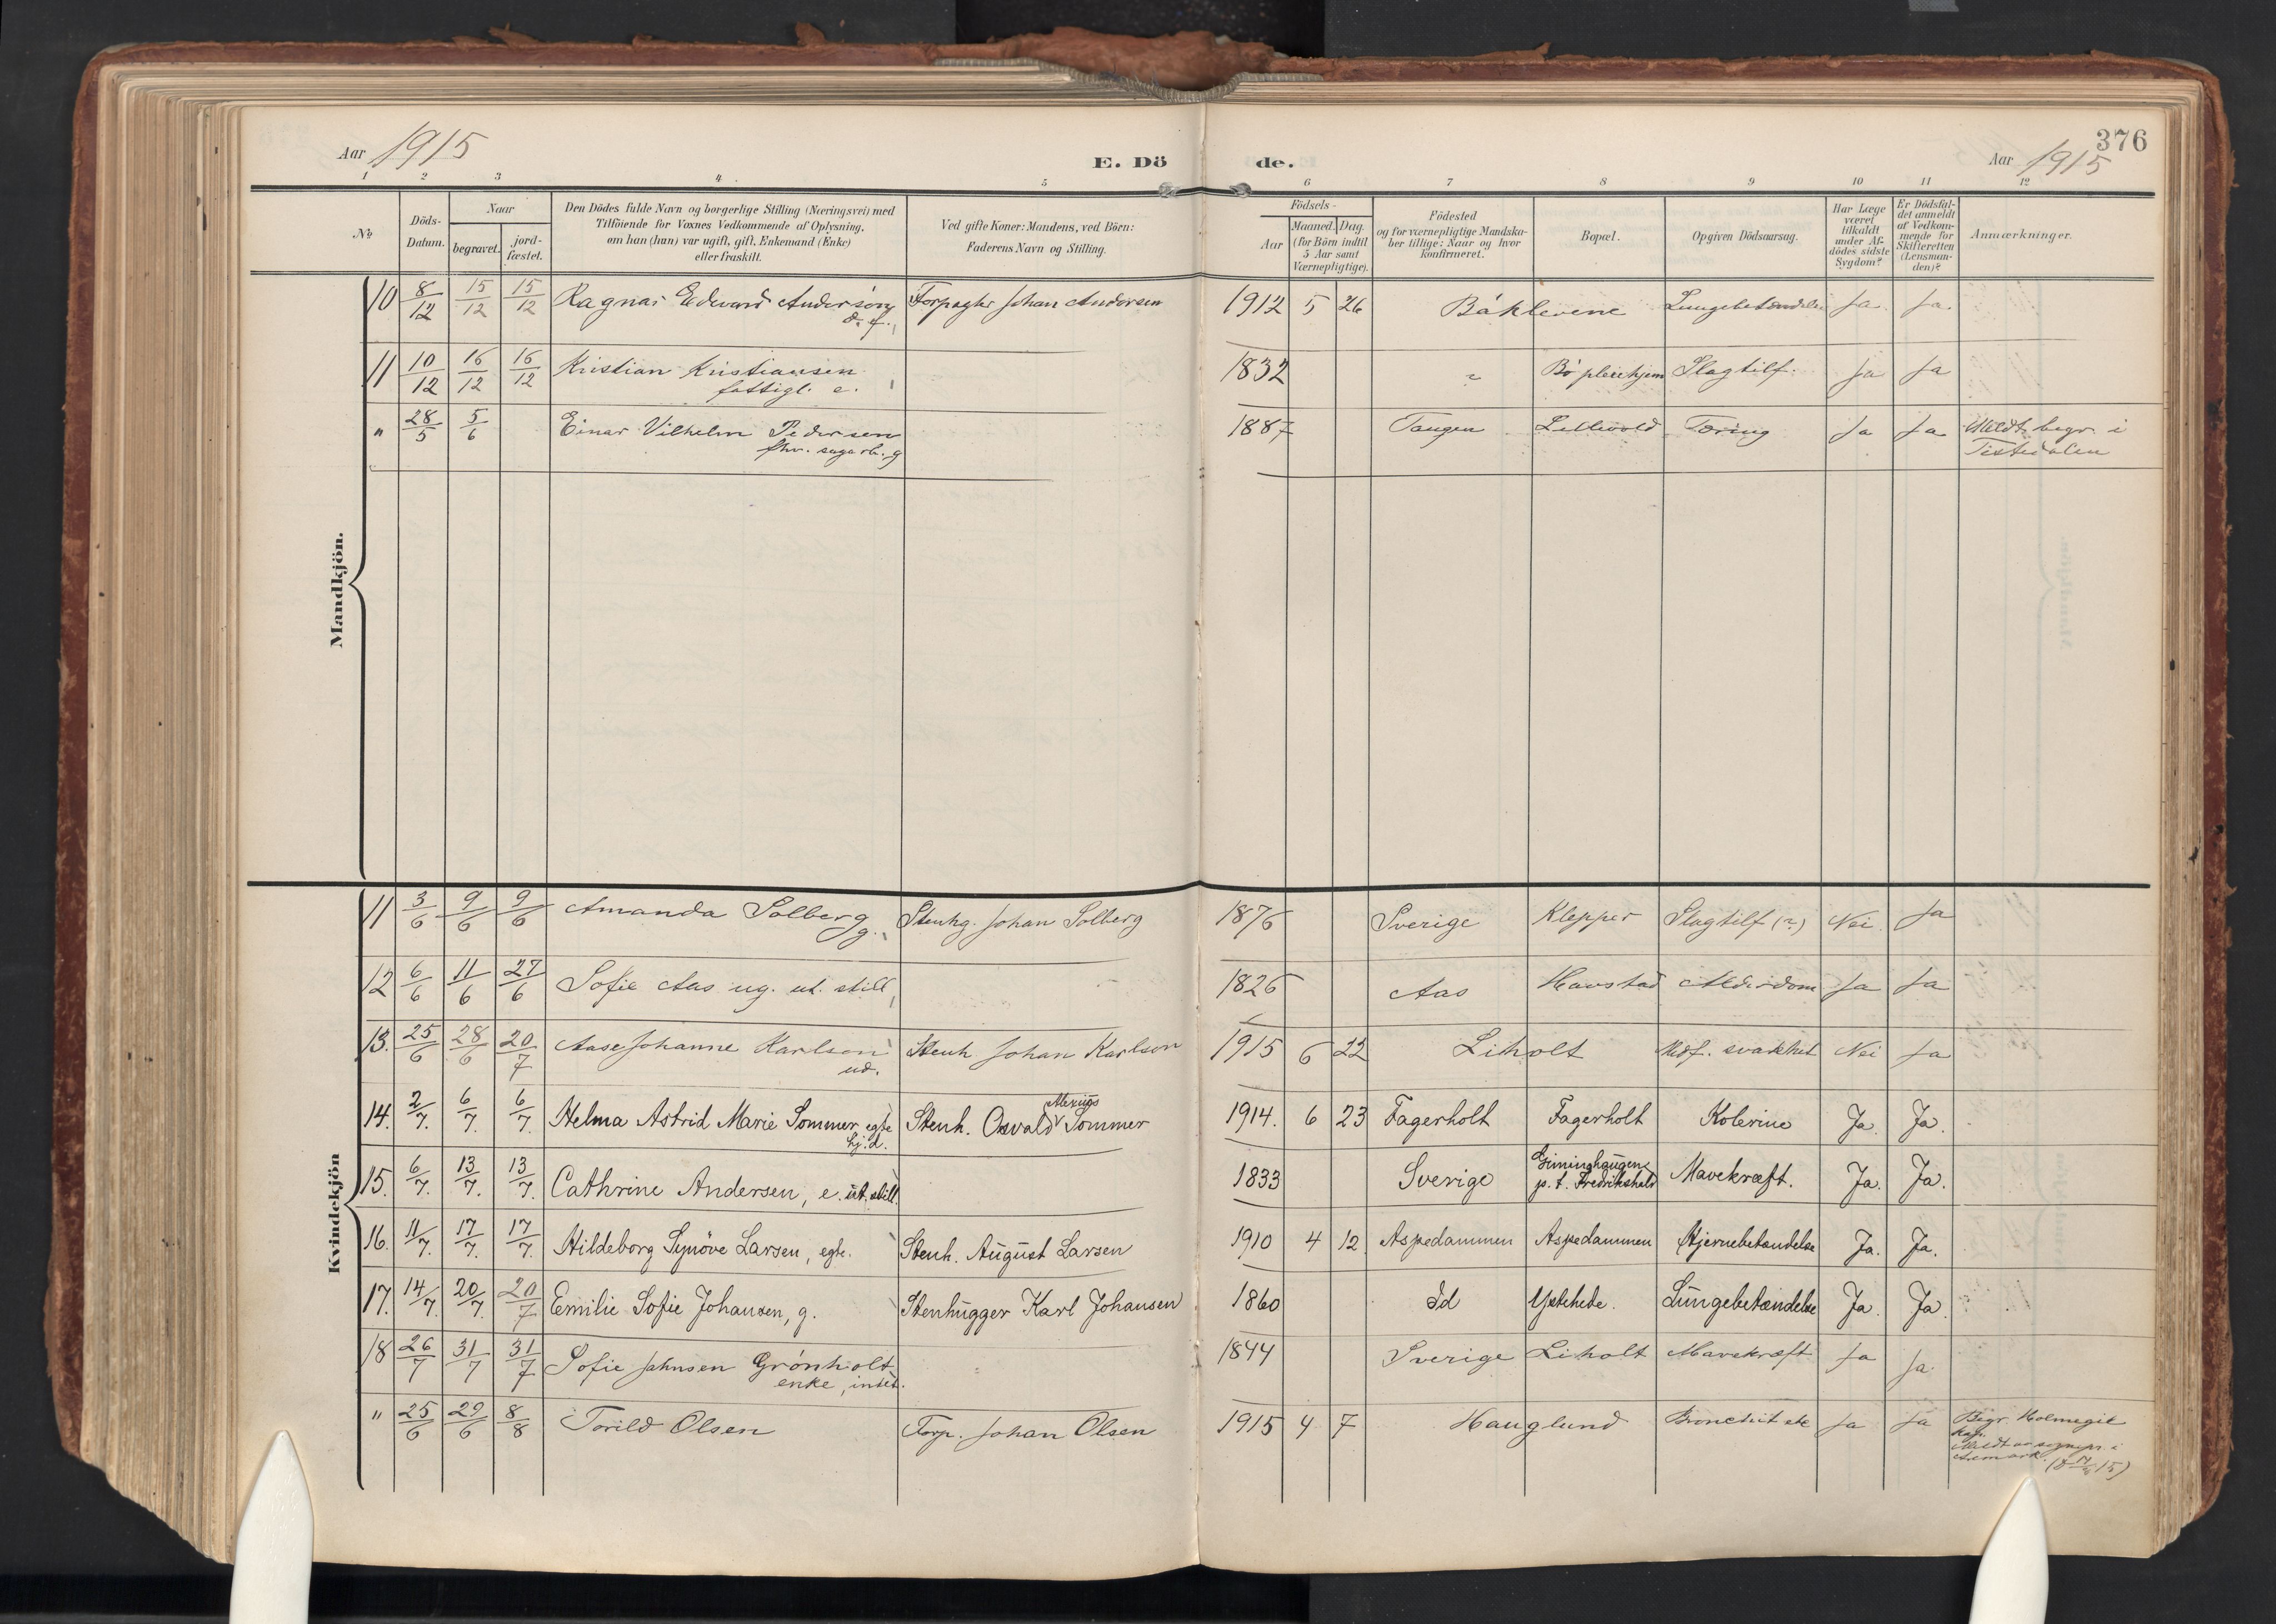 376
Aar 1915
E. Dö de.
Aar 1915
1 2 3 4 5 6 7 8 9 10 11 12
№
Döds-
Datum.
Naar
begravet.
jord-
fæstet.
Den Dödes fulde Navn og borgerlige Stilling (Næringsvei) med
Tilföiende for Voxnes Vedkommende af Oplysning,
om han (hun) var ugift, gift, Enkemand (Enke)
eller fraskilt.
Ved gifte Koner: Mandens, ved Börn:
Faderens Navn og Stilling.
Födsels-
Aar
Maaned. Dag.
(for Börn indtil
5 Aar samt
Værnepligtige).
Födested
og for værnepligtige Mandska-
ber tillige: Naar og hvor
konfirmeret.
Bopæl.
Opgiven Dödsaarsag.
Har Læge
været
tilkaldt
under Af-
dödes sidste
Sygdom?
Er Dödsfal-
det anmeldt
af Vedkom-
mende for
Skifteretten
(Lensman-
den)?
Anmærkninger.
Mandkjön.
10 8/12 15/12 15/12 Ragnar Edvard Anderson Forpagter Johan Anderson 1912 5 26 Båklevene Lungebetændelse Ja Ja
11 10/12 16/12 16/12 Kristian Kristiansen 1832 Bö pleiehjem Slagtilf. Ja Ja
fattigl. e.
" 28/5 5/6 Einar Vilhelm Pedersen 1887 Tangen Lillevold Tæring Ja Ja Meldt, begr. i
fhv. sagarb. g Tistedalen
Kvindekjön
11 3/6 9/6 9/6 Amanda Solberg g. Stenhg. Johan Solberg 1876 Sverige Klepper Slagtilf (?) Nei Ja
12 6/6 11/6 27/6 Sofie Aas ug. ut. still 1826 Aas Havstad Alderdom Ja Ja
13. 25/6 28/6 20/7 Aase Johanne Karlson Stenh Johan Karlson 1915 6 22 Liholt Medf. svakhet Nei Ja
ud.
14. 2/7. 6/7. 6/7. Helma Astrid Marie Sommer, egte Stenh. Osvald Alexius Sommer 1914. 6 23 Fagerholt Fagerholt Kolerine Ja. Ja.
hj. d.
15. 6/7. 13/7. 13/7. Cathrine Andersen, e. ut. still 1833 Sverige Giminghaugene Mavekræft. Ja. Ja.
p. t. Fredrikshald
16. 11/7. 17/7. 17/7. Hildeborg Synöve Larsen, egte. Stenh. August Larsen 1910 4 12 Aspedammen Aspedammen Hjernebetændelse Ja. Ja.
17. 14/7. 20/7. 20/7 Emilie Sofie Johansen, g. Stenhugger Karl Johansen 1860 Id Ystehede. Lungebetændelse Ja. Ja.
18 26/7 31/7 31/7 Sofie Johnsen Grönholt 1844 Sverige Liholt Mavekræft Ja Ja.
enke, intet.
" 25/6 29/6 8/8 Torild Olsen Forp. Johan Olsen 1915 4 7 Hauglund Bronchit Ja Ja Begr. Holmegil
kap.
Meldt av sognepr. i
Aremark.